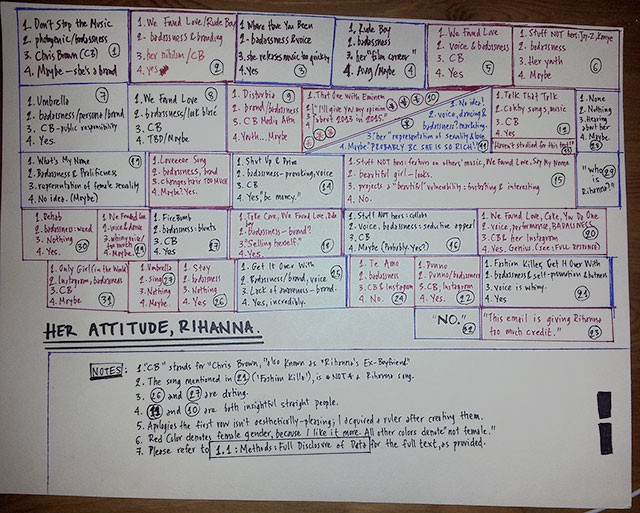 1. Don't Stop the Music
2. photogenic/badassness
3. Chris Brown (CB)
4. Maybe—she's a brand
1
1. We Found Love/Rude Boy
2. badassness & branding
3. her nihilism/CB
4. yes
2
1. Where Have You Been
2. badassness & voice
3. she releases music too quickly
4. Yes
3
1. Rude Boy
2. badassness
3. her "film career"
4. Avg/Maybe
4
1. We Found Love
2. voice & badassness
3. CB
4. Yes
5
1. Stuff NOT hers: Jay-Z, Kanye
2. badassness
3. Her youth
4. Maybe
6
1. Umbrella
2. badassness/persona/brand
3. CB-public responsibility
4. Yes.
7
1. We Found Love
3. CB
4. TBD/Maybe
8
1. Disturbia
2. brand/badassness
3. CB Media Attn
4. Yeah... Maybe
9
1. That One With Eminem
2. "I'll give you my opinion
about 2013 in 2015."
10
1. No idea!
2. voice, dancing &
badassness? marketing.
3. "her" representation of sexuality & love
4. Maybe "PROBABLY BC SHE IS SO RICH!"
11
1. Talk That Talk
2. Catchy songs, music
3. CB
4. Yes
12
"Haven't studied for this test!"
1. None
2. Nothing
3. Hearing
about her
4. Maybe
1. What's My Name
2. Badassness & Prolificness
3. representation of female sexuality
4. No idea. (Maybe)
1. Loveeeee Song
2. badassness, brand
3. Changes hair TOO MUCH
4. Maybe. Yes.
1. Shut Up & Drive
2. badassness-provoking, voice
3. CB
4. Yes, "be money."
14
1. Stuff NOT hers: features on others' music, We Found Love, Say My Name
2. beautiful girl-looks.
3. projects a "beautiful" vulnerability: frustrating & interesting
4. No.
15
"who is
Rihanna?"
1. Rehab
2. badassness: weed
3. Nothing
4. Yes.
30
1. We Found Love
2. voice & dance
4. Maybe
1. Fire Bomb
2. badassness: blunts
3. CB
4. Yes
1. Take Care, We Found Love, Rude
2. Badassness-brand?
3. "Selling herself"
4. Yes.
1. Stuff NOT hers: collabs
2. voice, badassness: seductive appeal
3. CB
4. Maybe (Probably: Yes?)
16
1. We Found Love, Cake, You Da One
2. voice, performance, BADASSNESS
3. CB & her Instagram
4. Yes. Genius. (see: FULL RESPONSE)
20
1. Only Girl (in the World)
2. Instagram; badassness
3. CB
4. Maybe.
31
1. Umbrella
3. Nothing
4. Maybe.
27
1. Stay
2. badassness
3. Nothing
4. Yes
26
1. Get It Over With
2. Badassness/brand, voice
3. Lack of awareness-brand.
4. Yes, incredibly.
25
1. Te Amo
2. badassness
3. CB & Instagram
4. No.
24
1. Dunno
2. Dunno/badassness
3. CB, Instagram
4. Yes.
22
1. Fashion Killer, Get It Over With
2. badassness & self-possession & hotness
3. voice is whiny.
4. Yes
21
"NO."
"This email is giving Rihanna
too much credit."
23
HER ATTITUDE, RIHANNA.
NOTES:
1. "CB" stands for "Chris Brown," also known as "Rihanna's Ex-Boyfriend"
2. The song mentioned in 21 ('Fashion Killa'), is *NOT* a Rihanna song.
3. 26 and 27 are dating.
4. 11 and 10 are both insightful straight people.
5. Apologies the first row isn't aesthetically-pleasing; I acquired a ruler after creating them.
6. Red Color denotes female gender, because I like it more. All other colors denote "not female."
7. Please refer to 1.1: Methods: Full Disclosure of Data for the full text, as provided.